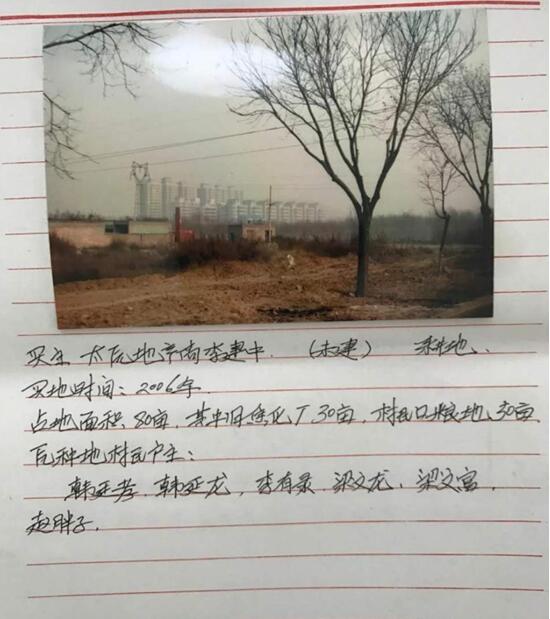 买主 太原地产商李建中. (未建) 耕地、
买地时间：2006年
占地面积 80亩，其中旧焦化厂30亩，村民口粮地 50亩
原种地村民户主：
韩延孝、韩延龙，李有录、梁文龙、梁文官，
赵胖子，